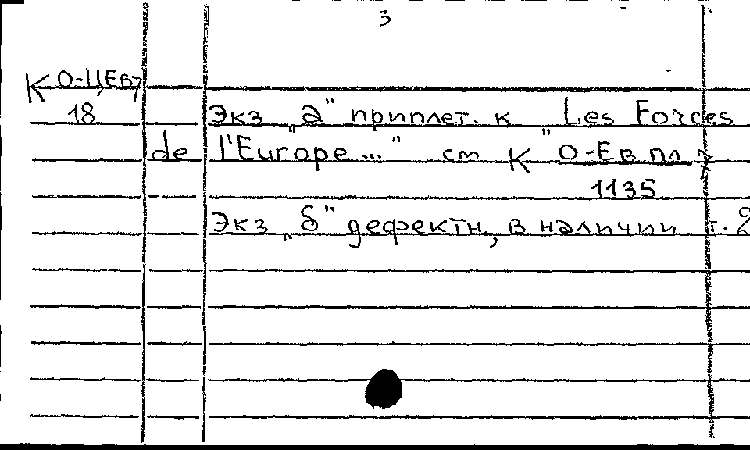 3
К О-ЦЕВ
18
Экз „а" приплет. к Les Forces
de l'Europe..." см К "О-Ев пл
1135
Экз „б" дефектн, в наличии т. 2